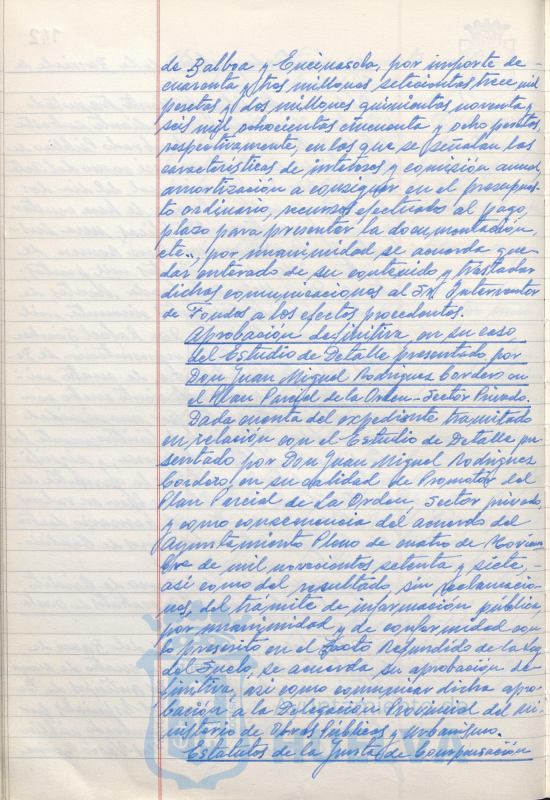 de Balboa y Encinasola, por importe de-
cuarenta y tres millones setecientas trece mil
pesetas y dos millones quinientas noventa y
seis mil ochocientas cincuenta y ocho pesetas,
respectivamente, en los que se señalan las
características de intereses y comisión anual,
amortización a consignar en el presupues-
to ordinario, recursos afectados al pago,
plazo para presentar la documentación,
etc., por unanimidad se acuerda que-
dar enterado de su contenido y trasladar
dichas comunicaciones al Sr. Interventor
de Fondos a los efectos procedentes.
Aprobación definitiva en su caso,
del Estudio de Detalle presentado por
Don Juan Miguel Rodríguez Cordero en
el Plan Parcial de la Orden-Sector Privado.
Dada cuenta del expediente tramitado
en relación con el Estudio de Detalle pre-
sentado por Don Juan Miguel Rodríguez
Cordero, en su calidad de Promotor del
Plan Parcial de La Orden, Sector privado,
y como consecuencia del acuerdo del
Ayuntamiento Pleno de cuatro de Noviem-
bre de mil novecientos setenta y siete,-
así como del resultado sin reclamacio-
nes, del trámite de información pública,
por unanimidad y de conformidad con
lo prescrito en el Texto Refundido de la Ley
del Suelo, se acuerda su aprobación de-
finitiva, así como comunicar dicha apro-
bación a la Delegación Provincial del Mi-
nisterio de Obras Públicas y Urbanismo.
Estatutos de la Junta de Compensación